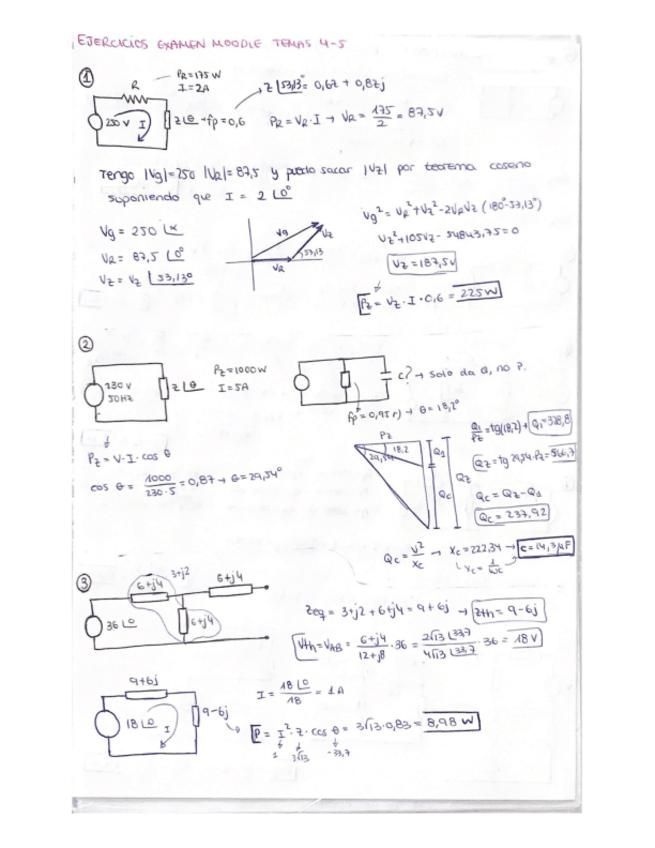 EJERCICIOS EXAMEN MOODLE TEMAS 4-5
①
R
PR=175W
I=2A
250 V
I
Z∠θ → fp=0,6
Z ∠53,13° = 0,6Z + 0,8Zj
PR = VR · I → VR = 175/2 = 87,5V
Tengo |Vg|=250 |VR|=87,5 y puedo sacar |VZ| por teorema coseno
suponiendo que I = 2 ∠0°
Vg = 250 ∠α
VR = 87,5 ∠0°
VZ = VZ ∠53,13°
Vg
VZ
VR
53,13
Vg² = VR² + VZ² - 2VRVZ (180°-53,13°)
VZ² + 105VZ - 54843,75 = 0
VZ = 187,5V
PZ = VZ · I · 0,6 = 225W
②
230 V
50Hz
Z∠θ
PZ=1000W
I=5A
C? → solo da Q, no P.
fp=0,95 r) → θ=18,2°
PZ = V·I·cos θ
cos θ = 1000/230·5 = 0,87 → θ=29,54°
PZ
18,2
29,54
Q1
QC
QZ
Q1/PZ = tg(18,2) → Q1=328,8
QZ = tg 29,54·PZ = 566,7
QC = QZ - Q1
QC = 237,92
QC = V²/XC → XC = 222,34 → C = 14,3 μF
XC = 1/ωC
③
6+j4
3+j2
6+j4
36∠0
6+j4
Zeq = 3+j2 + 6+j4 = 9+6j → Zth = 9-6j
Vth = VAB = 6+j4/12+j8 · 36 = 2√13 ∠33,7/4√13 ∠33,7 · 36 = 18 V
9+6j
18∠0
I
9-6j
I = 18∠0/18 = 1 A
P = I² · Z · cos θ = 3√13 · 0,83 = 8,98 W
1
3√13
-33,7